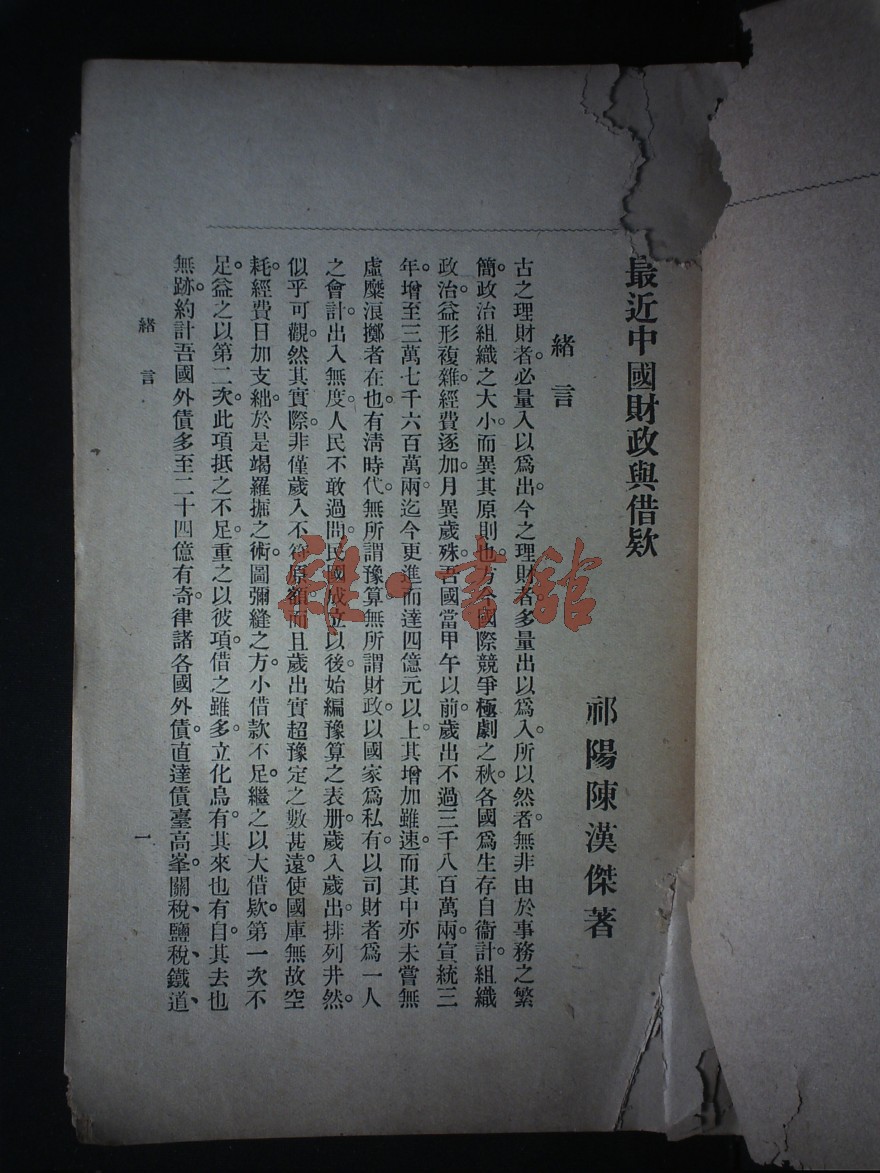 最近中國財政與借欵
祁陽陳漢傑著
緒言
古之理財者。必量入以爲出。今之理財者多量出以爲入。所以然者。無非由於事務之繁
簡。政治組織之大小。而異其原則也。方今國際競爭極劇之秋。各國爲生存自衞計。組織
政治益形複雜。經費逐加。月異歲殊。吾國當甲午以前。歲出不過三千八百萬兩。宣統三
年。增至三萬七千六百萬兩。迄今更進而達四億元以上。其增加雖速。而其中亦未嘗無
虛糜浪擲者在也。有淸時代。無所謂豫算。無所謂財政。以國家爲私有。以司財者爲一人
之會計。出入無度。人民不敢過問。民國成立以後。始編豫算之表册。歲入歲出。排列井然。
似乎可觀。然其實際。非僅歲入不符原額。而且歲出實超豫定之數甚遠。使國庫無故空
耗。經費日加支絀。於是竭羅掘之術。圖彌縫之方。小借款不足。繼之以大借欵。第一次不
足。益之以第二次。此項抵之不足。重之以彼項。借之雖多。立化烏有。其來也有自。其去也
無跡。約計吾國外債多至二十四億有奇。律諸各國外債。直達債臺高峯。關稅、鹽稅、鐵道、
緒言
一
雜·書館